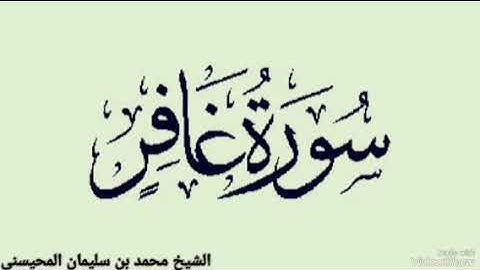 سُورَةُ غَافِرٍ
الشيخ محمد بن سليمان المحيسنى
Made with
VideoShow